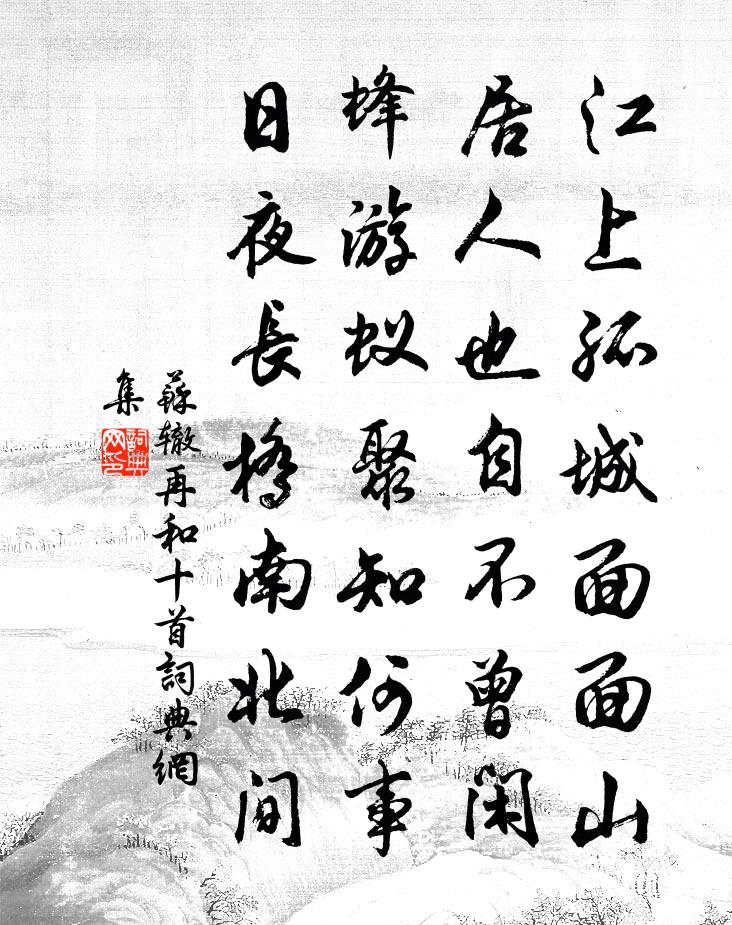 江上孤城面面山
居人也自不曾閑
蜂游蚁聚知何事
日夜長橋南北間
蘇辙再和十首詞典網
集
詞典
网印